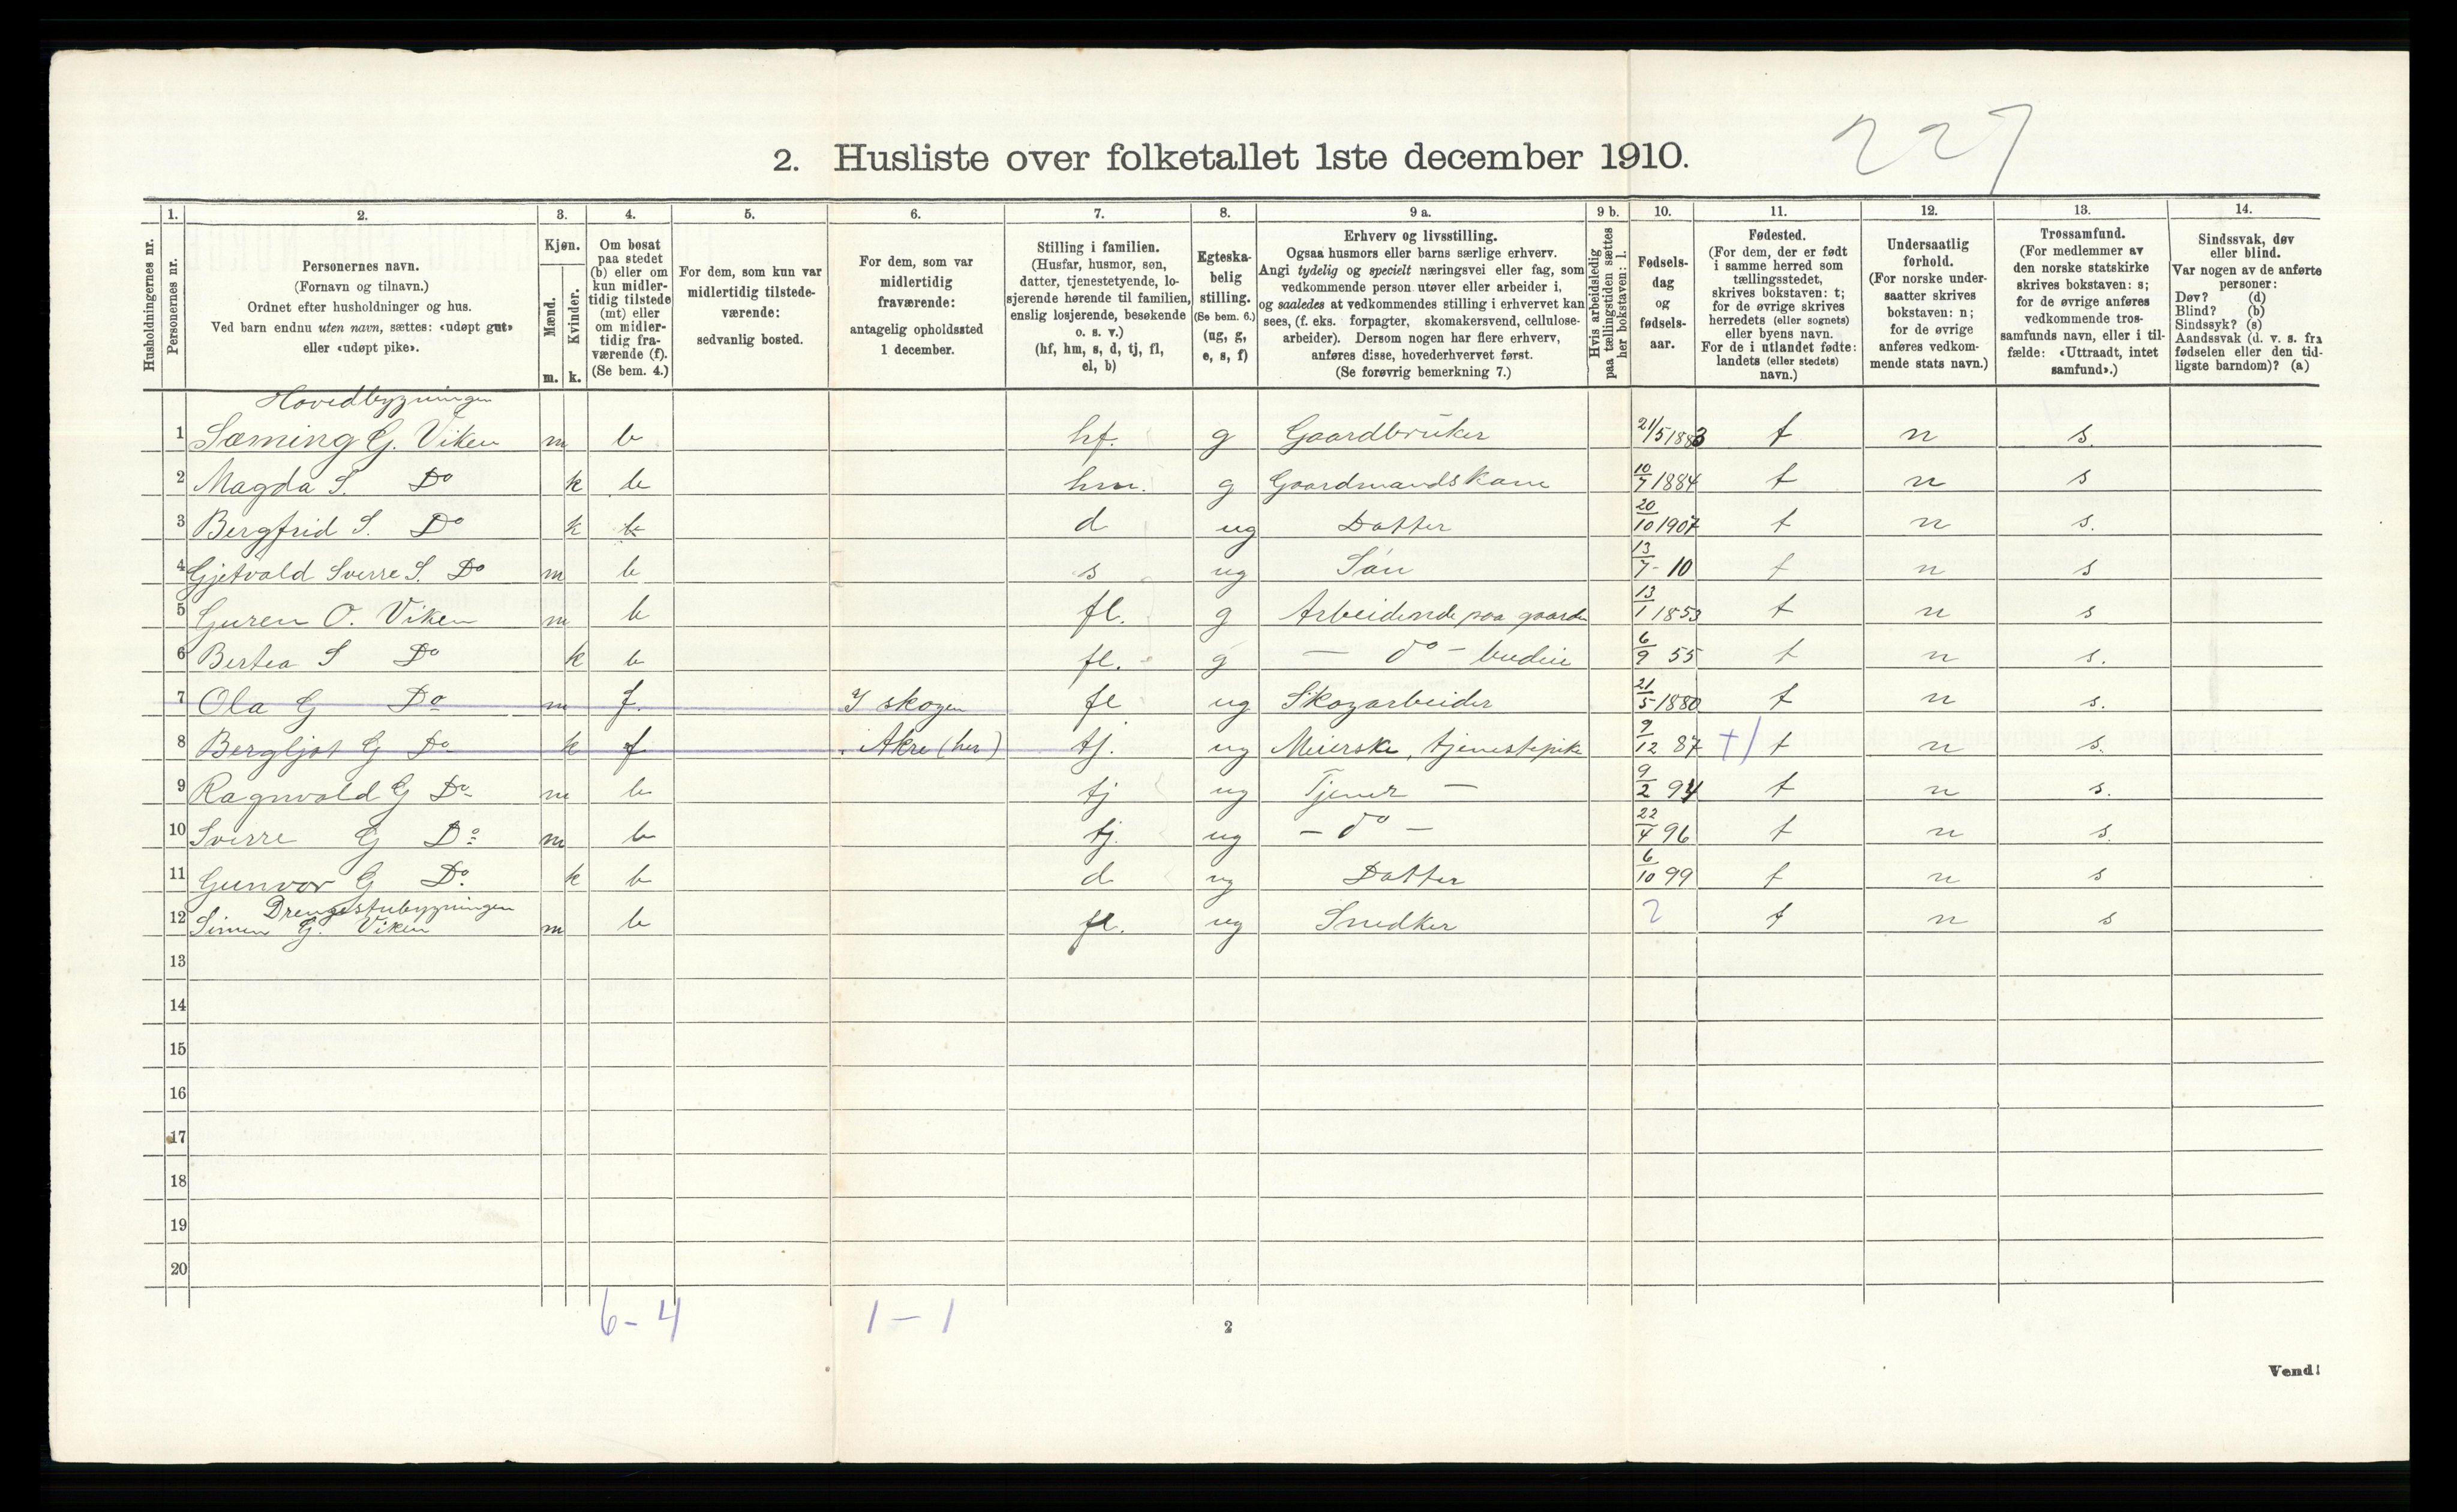 227
2. Husliste over folketallet 1ste december 1910.
Husholdningernes nr.
1.
Personernes nr.
2.
Personernes navn.
(Fornavn og tilnavn.)
Ordnet efter husholdninger og hus.
Ved barn endnu uten navn, sættes: «udøpt gut»
eller «udøpt pike».
3.
Kjøn.
Mænd.
Kvinder.
m. k.
4.
Om bosat
paa stedet
(b) eller om
kun midler-
tidig tilstede
(mt) eller
om midler-
tidig fra-
værende (f).
(Se bem. 4.)
5.
For dem, som kun var
midlertidig tilstede-
værende:
sedvanlig bosted.
6.
For dem, som var
midlertidig
fraværende:
antagelig opholdssted
1 december.
7.
Stilling i familien.
(Husfar, husmor, søn,
datter, tjenestetyende, lo-
sjerende hørende til familien,
enslig losjerende, besøkende
o. s. v.)
(hf, hm, s, d, tj, fl,
el, b)
8.
Egteska-
belig
stilling.
(Se bem. 6.)
(ug, g,
e, s, f)
9 a.
Erhverv og livsstilling.
Ogsaa husmors eller barns særlige erhverv.
Angi tydelig og specielt næringsvei eller fag, som
vedkommende person utøver eller arbeider i,
og saaledes at vedkommendes stilling i erhvervet kan
sees, (f. eks. forpagter, skomakersvend, cellulose-
arbeider). Dersom nogen har flere erhverv,
anføres disse, hovederhvervet først.
(Se forøvrig bemerkning 7.)
9 b.
Hvis arbeidsledig
paa tællingstiden sættes
her bokstaven: l.
10.
Fødsels-
dag
og
fødsels-
aar.
11.
Fødested.
(For dem, der er født
i samme herred som
tællingsstedet,
skrives bokstaven: t;
for de øvrige skrives
herredets (eller sognets)
eller byens navn.
For de i utlandet fødte:
landets (eller stedets)
navn.)
12.
Undersaatlig
forhold.
(For norske under-
saatter skrives
bokstaven: n;
for de øvrige
anføres vedkom-
mende stats navn.)
13.
Trossamfund.
(For medlemmer av
den norske statskirke
skrives bokstaven: s;
for de øvrige anføres
vedkommende tros-
samfunds navn, eller i til-
fælde: «Uttraadt, intet
samfund».)
14.
Sindssvak, døv
eller blind.
Var nogen av de anførte
personer:
Døv? (d)
Blind? (b)
Sindssyk? (s)
Aandssvak (d. v. s. fra
fødselen eller den tid-
ligste barndom)? (a)
Hovedbygningen
1 Sæming G. Viken m b hf. g Gaardbruker 21/5 1883 t n s.
2 Magda S. Do k b hm. g Gaardmandskone 10/7 1884 t n s
3 Bergfrid S. Do k b d ug Datter 20/10 1907 t n s.
4 Gjetvald Sverre S. Do m b s ug Søn 13/7 - 10 t n s
5 Guren O. Viken m b fl. g Arbeidende paa gaarden 13/1 1853 t n s
6 Bertea S Do k b fl. g — do — budeie 6/9 55 t n s.
7 Ola G Do m f. I skogen fl ug Skogarbeider 21/5 1880 t n s.
8 Bergljot G Do k f Akre (her) tj. ug Meierske, tjenestepike 9/12 87 t n s.
9 Ragnvald G Do m b tj ug Tjener — 9/2 94 t n s.
10 Sverre G Do m b tj. ug — do — 22/4 96 t n s.
11 Gunvor G Do. k b d ug Datter 6/10 99 t n s
Drengestubygningen
12 Simen G. Viken m b fl. ug Snedker ? t n s
13
14
15
16
17
18
19
20
6 - 4 1 - 1
2
Vend!